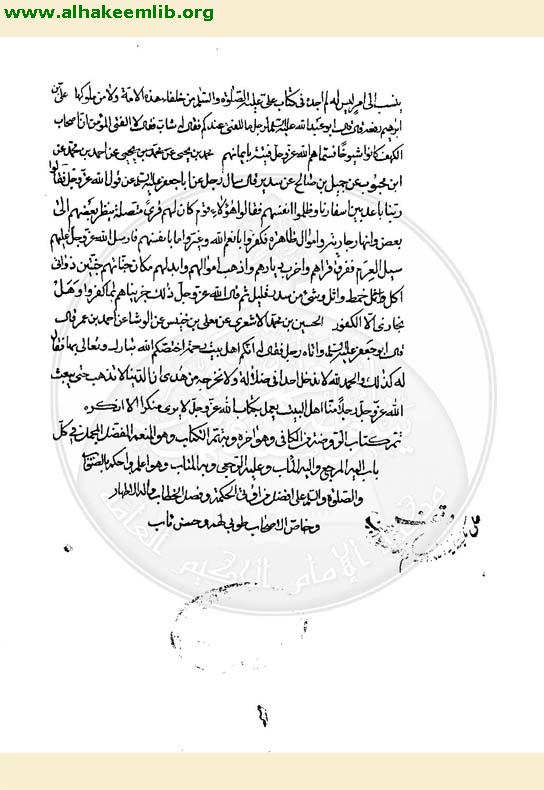 www.alhakeemlib.org
ينسب الى امر ليس له لم اجده فى كتاب على عليه الصلوة والسلم من خلفاء هذه الامة ولا من ملوكها على بن
ابرهيم رفعه قال قال ابو عبد الله عليه السلم لرجل ما الفتى عندكم فقال له الشاب فقال لا الفتى المؤمن ان اصحاب
الكهف كانوا شيوخا فسماهم الله عز وجل فتية بايمانهم محمد بن يحيى عن احمد بن محمد عن
ابن محبوب عن جميل بن صالح عن سدير قال سال رجل عن ابا جعفر عليه السلم عن قول الله عز وجل فقالوا
ربنا باعد بين اسفارنا وظلموا انفسهم فقال هؤلاء قوم كان لهم قرى متصلة ينظر بعضهم الى
بعض وانهار جارية واموال ظاهرة فكفروا بانعم الله وغيروا ما بانفسهم فارسل الله عز وجل عليهم
سيل العرم ففرق قراهم واخرب ديارهم واذهب اموالهم وابدلهم مكان جناتهم جنتين ذواتى
اكل خمط واثل وشىء من سدر قليل ثم قال الله عز وجل ذلك جزيناهم بما كفروا وهل
نجازى الا الكفور الحسين بن محمد الاشعرى عن معلى بن محمد عن الوشا عن احمد بن عمر قال
قال ابو جعفر عليه السلم واتاه رجل فقال له انكم اهل بيت رحمة اختصكم الله تبارك وتعالى بها فقال
له كذلك والحمد لله لا ندخل احدا فى ضلالة ولا نخرجه من هدى ان الدنيا لا تذهب حتى يبعث
الله عز وجل رجلا منا اهل البيت يعمل بكتاب الله عز وجل لا يرى منكرا الا انكره
تم كتاب الروضة من الكافى وهو اخره وبه تم الكتاب وهو المنعم المفضل المجمل فى كل
باب اليه المرجع واليه المآب وعليه الرجعى وبه المثاب وهو اعلم واحكم بالصواب
والصلوة والسلم على افضل من اوتى الحكمة وفصل الخطاب وآله الاطهار
وخاص الاصحاب طوبى لهم وحسن مآب